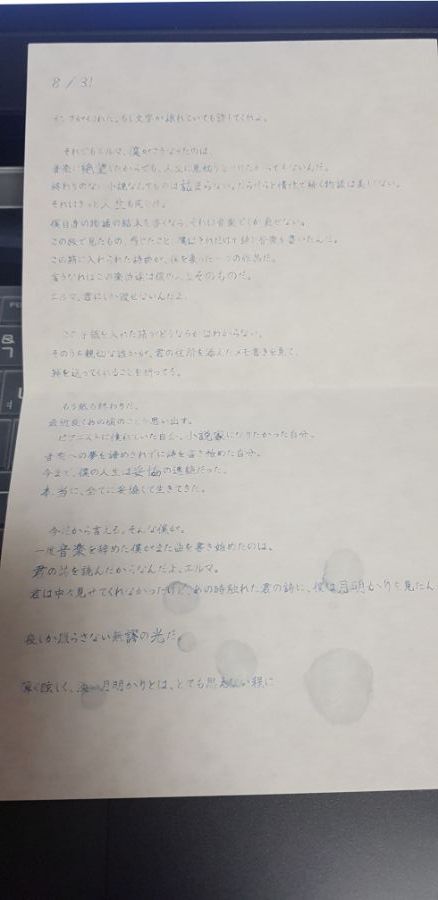 8/31
それでもエルマ、僕がこうなったのは、
音楽に絶望したからでも、人生に見切りをつけたからでもないんだ。
終わりのない小説なんてものは詰まらない。だらだらと惰性で続く物語は美しくない。
それはきっと人生も同じだ。
僕自身の物語の結末を書くなら、それは音楽でしか表せない。
この旅で見たもの、感じたこと、僕はそれだけで詩と音楽を書いたんだ。
この箱に入れられた詩曲が、僕を象った一つの作品だ。
言うなればこの楽曲達は僕の人生そのものだ。
エルマ、君にしか渡せないんだよ。
この手紙を入れた箱がどうなるかはわからない。
そのうち親切な誰かが、君の住所を添えたメモ書きを見て、
箱を送ってくれることを祈ってる。
もう紙も終わりだ。
最近良くあの頃のことを思い出す。
ピアニストに憧れていた自分、小説家になりたかった自分。
音楽への夢を諦めきれずに詩を書き始めた自分。
今まで、僕の人生は妥協の連続だった。
本当に、全てに妥協して生きてきた。
今だから言える。そんな僕が、
一度音楽を辞めた僕がまた曲を書き始めたのは、
君の詩を読んだからなんだよ、エルマ。
君は中々見せてくれなかったけど、あの時触れた君の詩に、僕は月明かりを見たん
夜しか照らさない無謬の光だ
薄く眩しく、月明かりとは、とても思えない程に